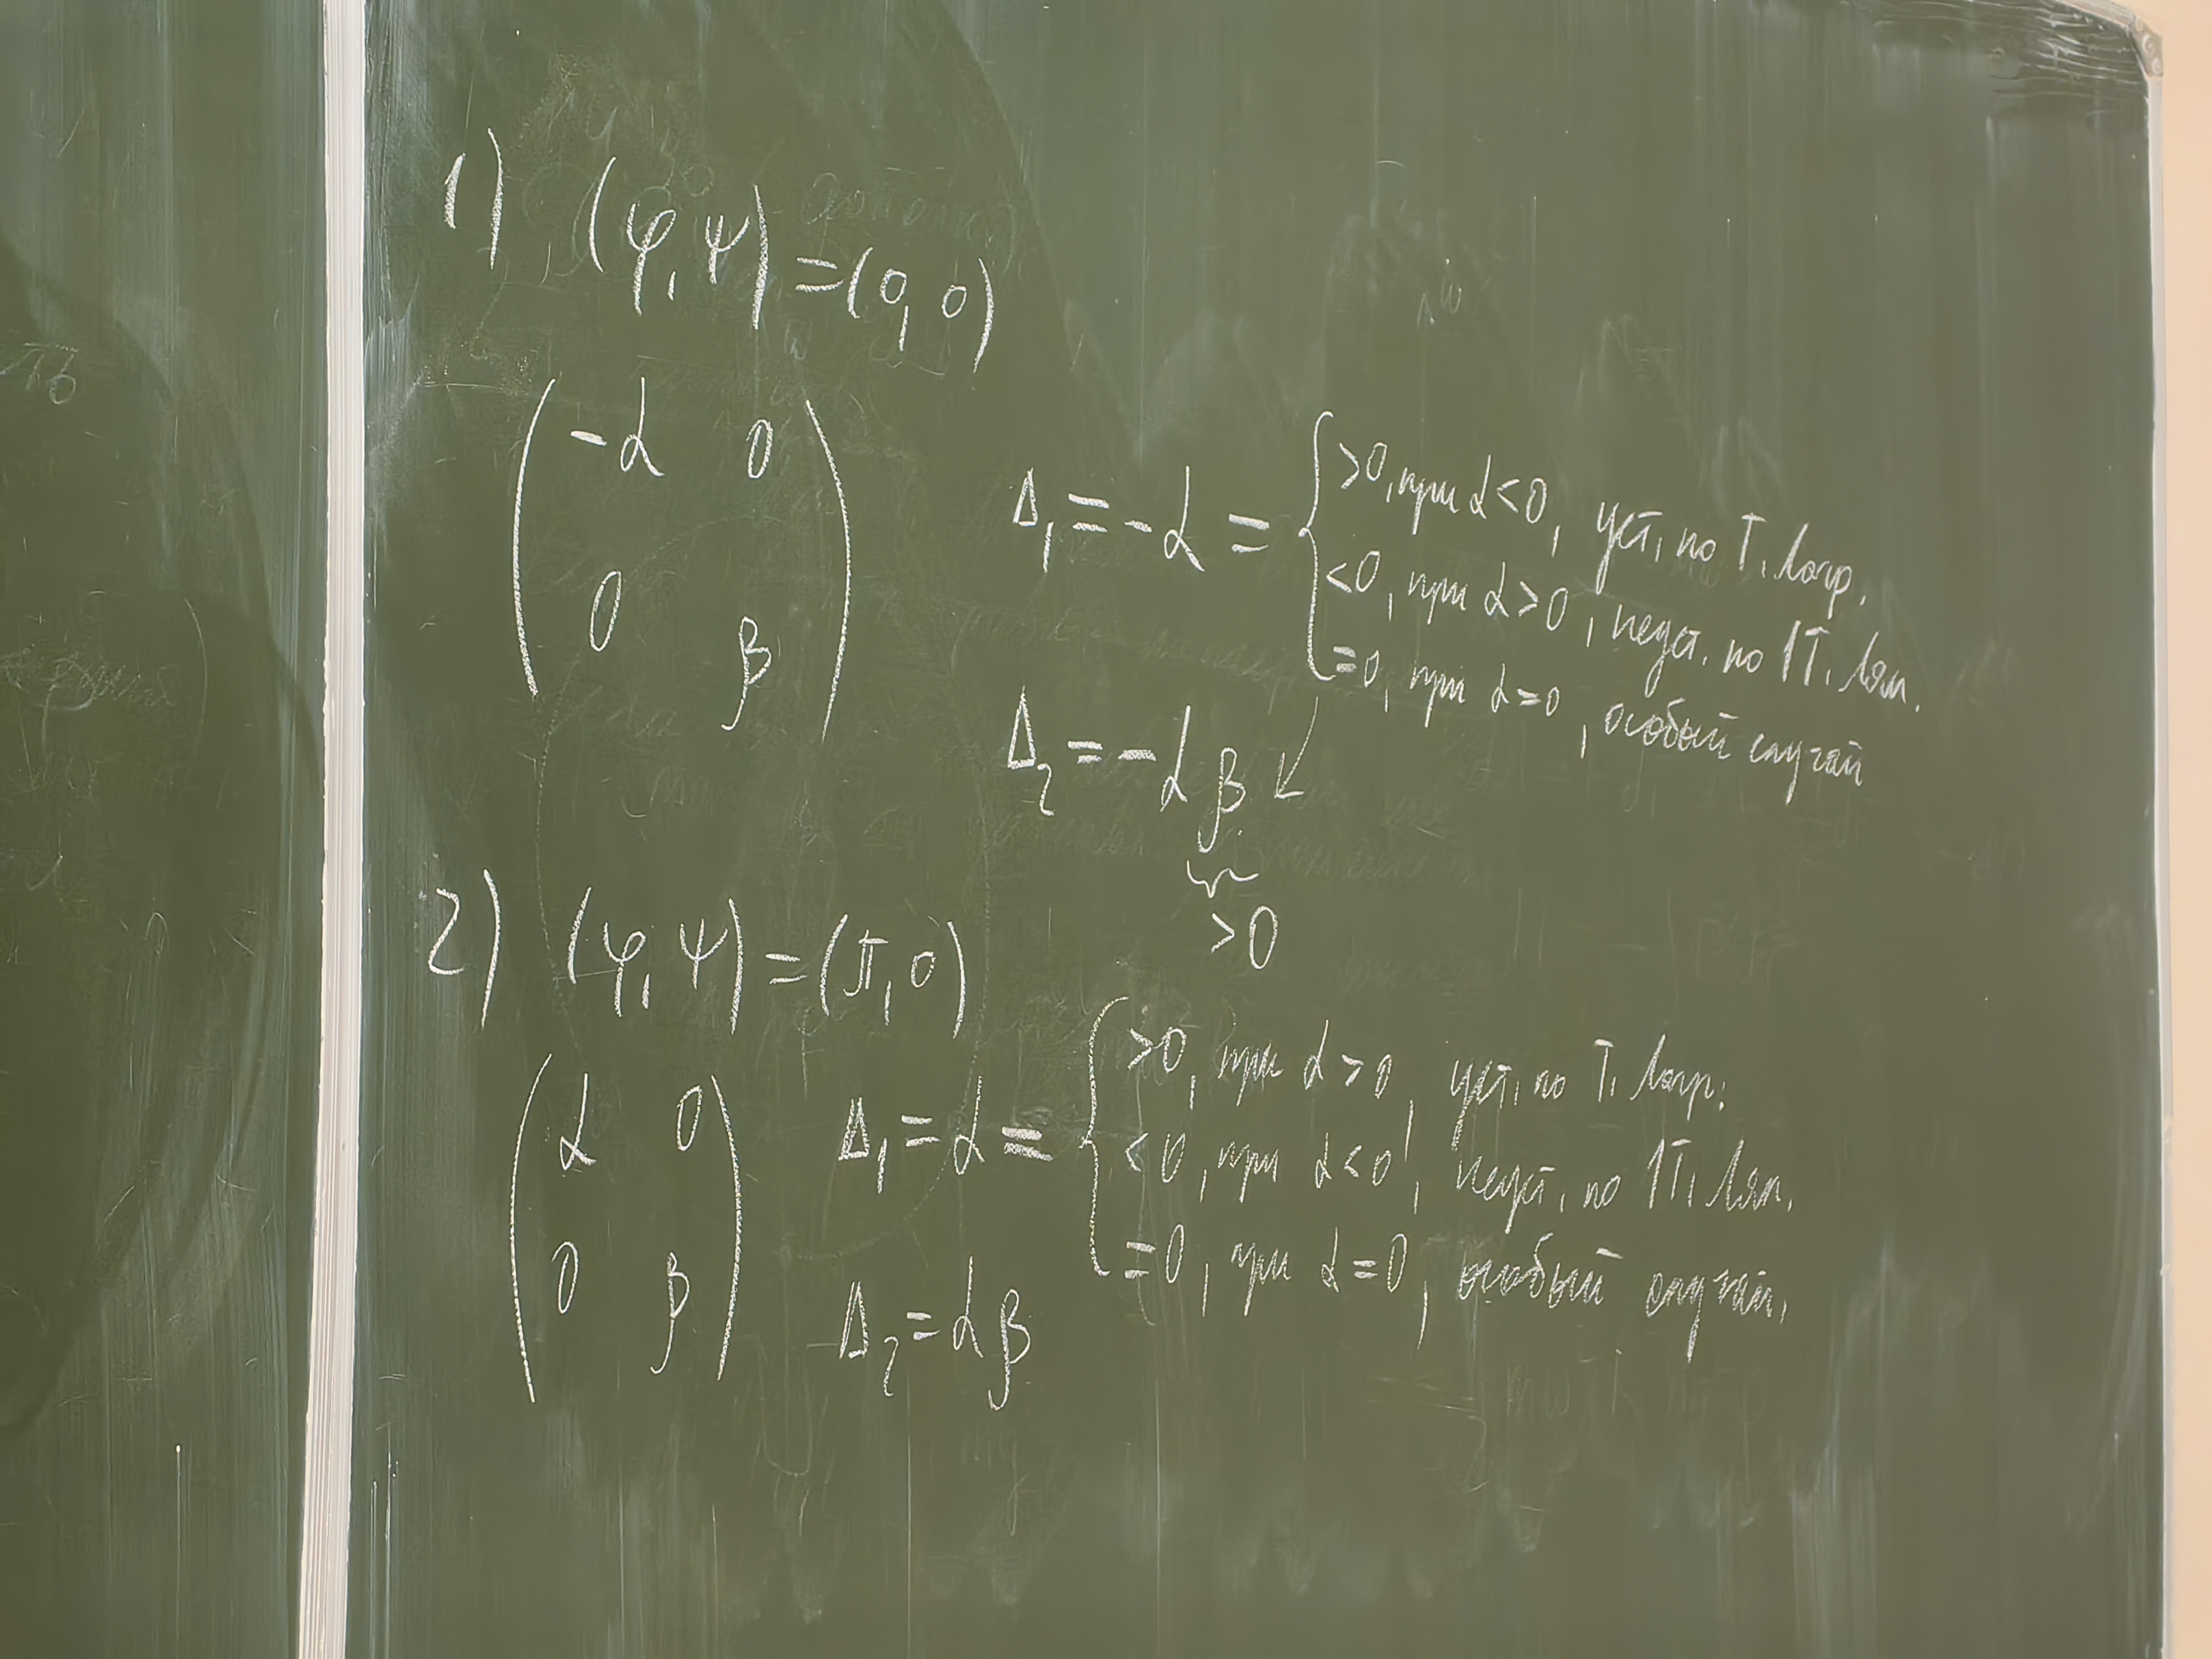 1) (φ, ψ) = (0, 0)
( -α 0
0 β )
Δ₁ = -α = { >0, при α<0, уст. по Т. Лагр.
<0, при α>0, неуст. по 1Т. Ляп.
=0, при α=0, особый случай
Δ₂ = -αβ ↙
>0
2) (φ, ψ) = (π, 0)
( α 0
0 β )
Δ₁ = α = { >0, при α>0, уст. по Т. Лагр.
<0, при α<0, неуст. по 1Т. Ляп.
=0, при α=0, особый случай.
Δ₂ = αβ